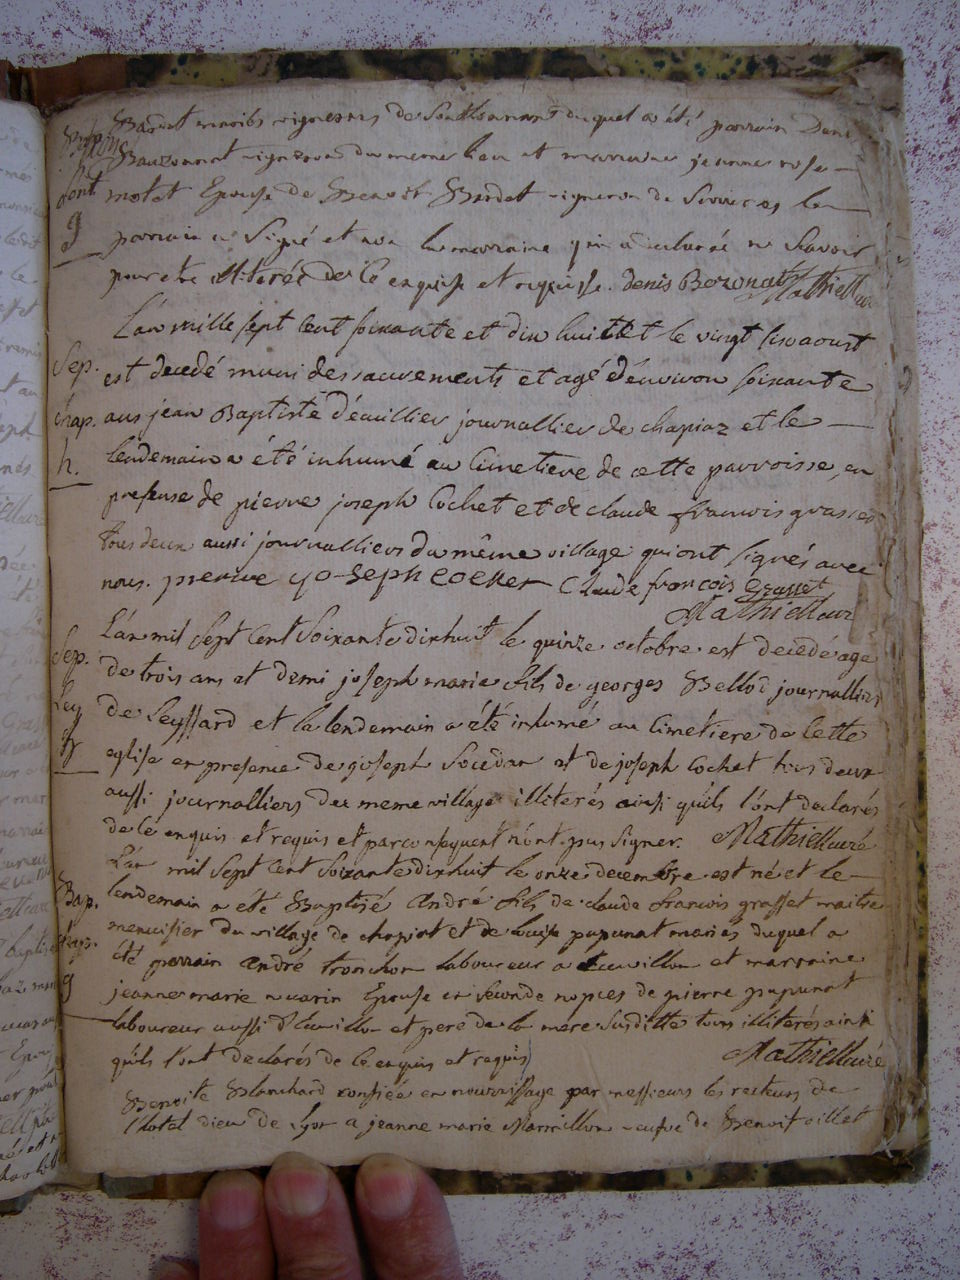 Bardet mariés vignerons de Sonthonnant duquel a été parrain Denis
Bap.
Bauzonnat vigneron du meme lieu et marraine jeanne rose
Sont
motet Epouse de Benoit Bardet vigneron de Serrieres le
g
parrain a Signé et non la marraine qui a declarée ne Scavoir
pour etre illiterée de ce enquise et requise. denis Bozonat Mathieu Curé
L'an mille sept Cent soixante et dix huittet le vingt six aoust
Sep.
est decedé muni des sacrements et agé d'environ soixante
chap.
ans jean Baptiste d'écuillier journallier de chapiaz et le
h.
lendemain a été inhumé au Cimetiere de cette parroisse, en
presense de pierre joseph Cochet et de claude francois grasset
tous deux aussi journalliers du même village qui ont signés avec
nous. pierre yoseph cocher Claude francois Grasset
Mathieu Curé
L'an mil Sept Cent Soixante dixhuit le quinze octobre est decedé age
Sep.
de trois ans et demi joseph marie fils de georges Bellod journallier
Ley
de Leyssard et la lendemain a été inhumé au Cimetiere de Cette
g
eglise en presence de joseph Socedan et de joseph Cochet tous deux
aussi journalliers du meme village illiterés ainsi qu'ils l'ont declarés
de ce enquis et requis et par consequent n'ont pas signer. Mathieu Curé
L'an mil Sept Cent Soixante dixhuit le onze decembre est né et le
Bap.
lendemain a été Baptisé André fils de claude francois grasset maitre
menuisier du village de chapiat et de Louise pupunat mariés duquel a
chap.
été parrain andré tronchon laboureur a Ecuvillon et marraine
g
jeanne marie nuarin Epouse en Seconde nopces de pierre pupunat
laboureur aussi d'Ecuvillon et pere de la mere Susditte tous illiterés ainsi
qu'ils l'ont declarés de ce enquis et requis Mathieu Curé
Benoite Blanchard confiée en nourrissage par messieurs les recteurs de
l'hotel dieu de Lyon a jeanne marie Marmillon veufve de Benoit oillet